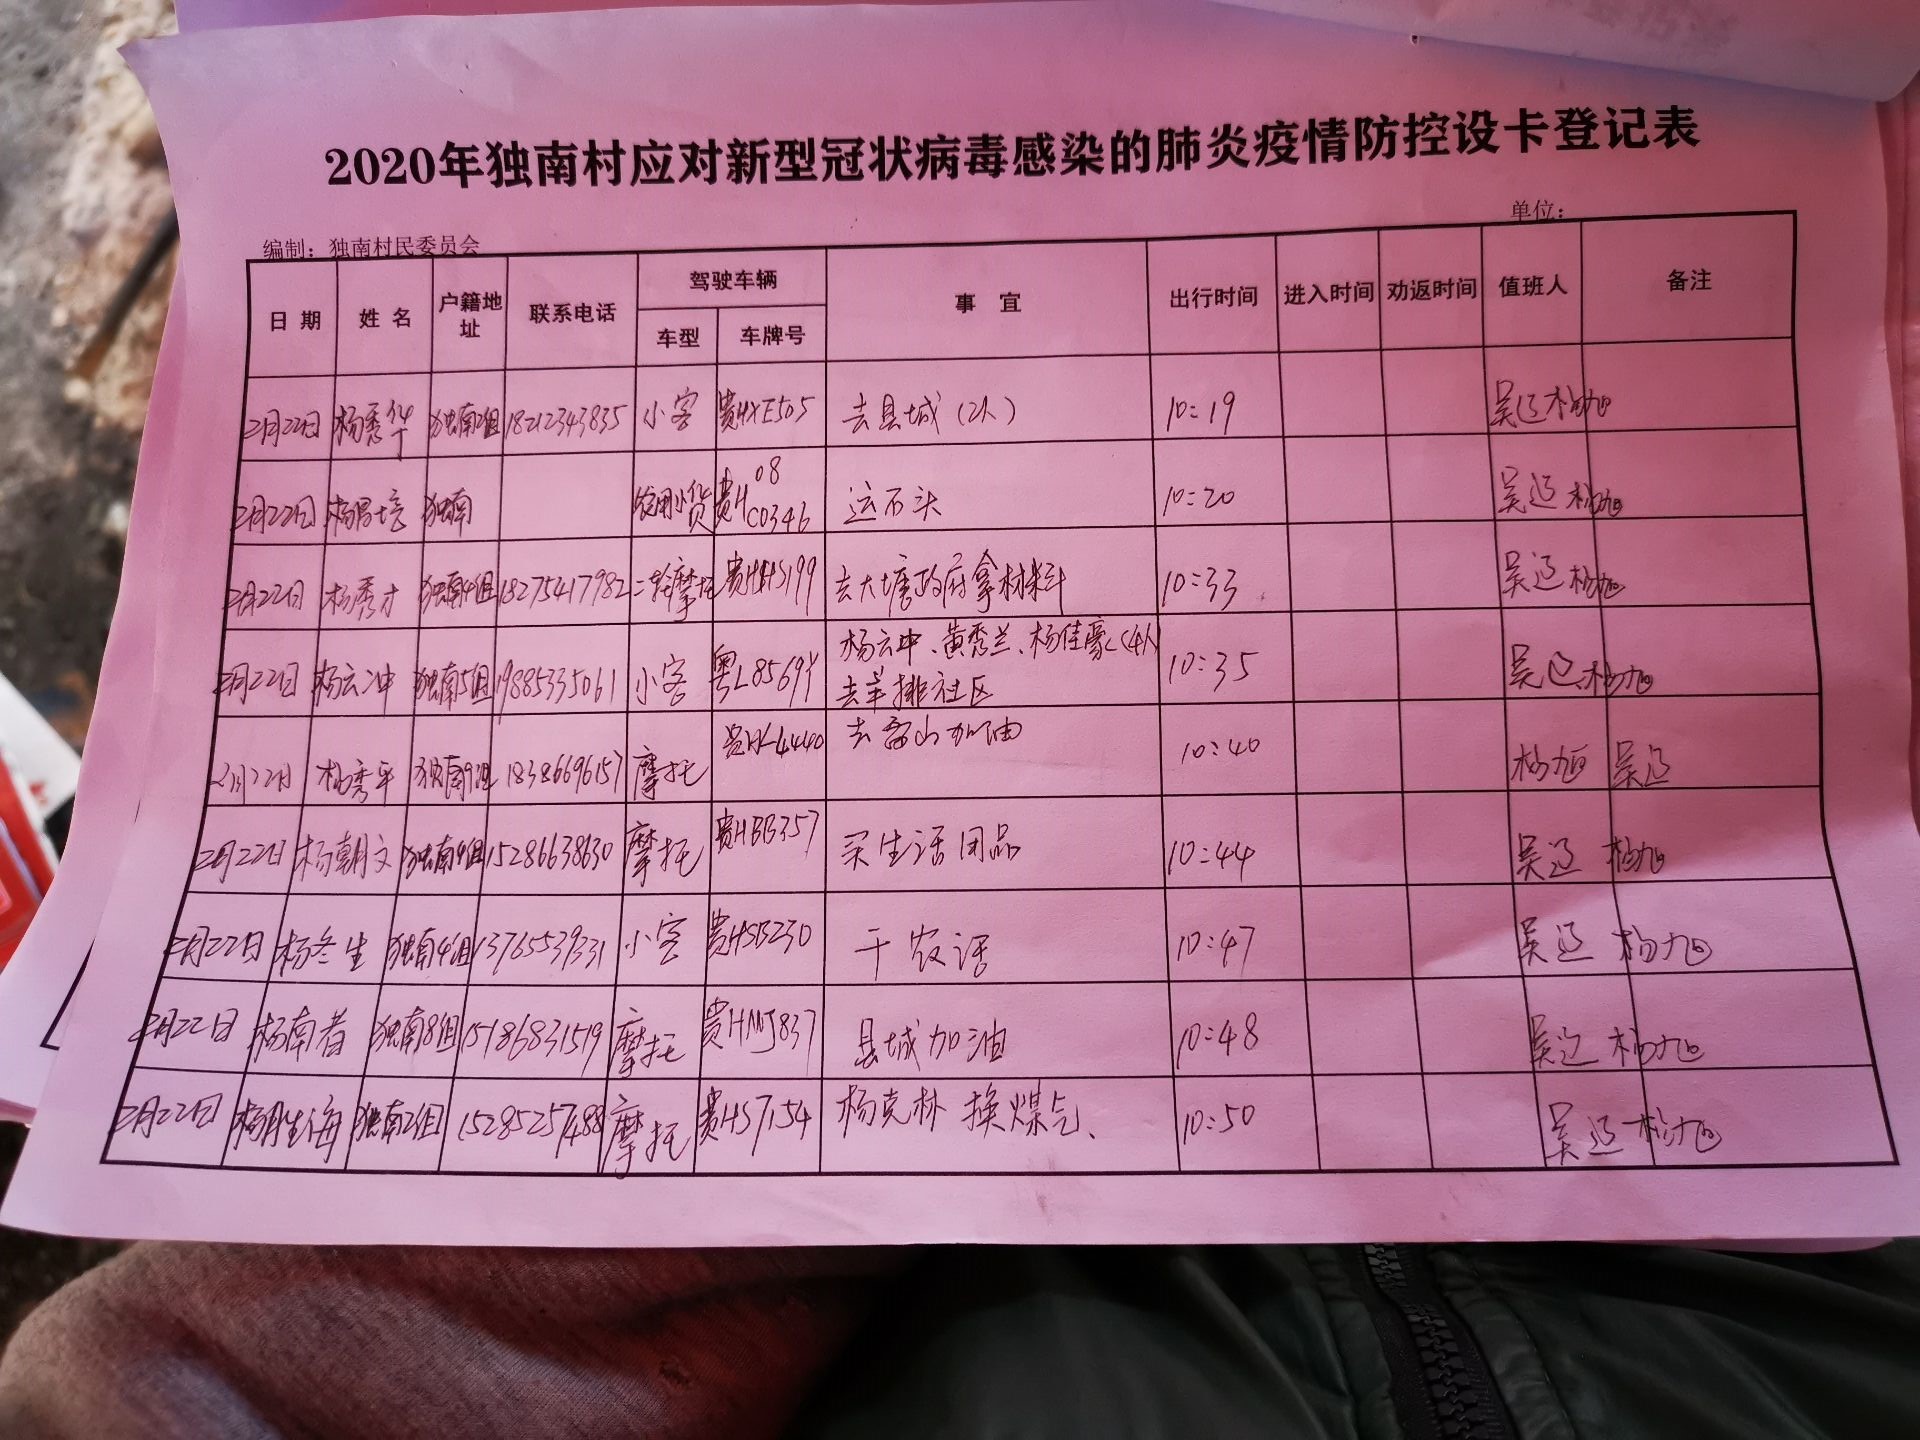 2020年独南村应对新型冠状病毒感染的肺炎疫情防控设卡登记表
编制：独南村民委员会 单位：
日期 姓名 户籍地址 联系电话 驾驶车辆 车型 车牌号 事宜 出行时间 进入时间 劝返时间 值班人 备注
2月22日 杨秀华 独南2组 18212343835 小客 贵HXE505 去县城（2人） 10:19 吴辽 杨旭
2月22日 杨昌培 独南 农用小货 贵H08C0346 运石头 10:20 吴辽 杨旭
2月22日 杨秀才 独南4组 18275417982 二轮摩托 贵HHS199 去大塘政府拿材料 10:33 吴辽 杨旭
2月22日 杨云冲 独南5组 19885335061 小客 粤L8569Y 杨云中、黄秀兰、杨佳豪（4人
去羊排社区 10:35 吴辽 杨旭
2月22日 杨秀平 独南9组 18386696157 摩托 贵HL4440 去雷山加油 10:40 杨旭 吴辽
2月22日 杨朝文 独南9组 15286638630 摩托 贵HBB357 买生活用品 10:44 吴辽 杨旭
2月22日 杨冬生 独南4组 13765539331 小客 贵HSB230 干农活 10:47 吴辽 杨旭
2月22日 杨南者 独南8组 15186831519 摩托 贵HMJ837 县城加油 10:48 吴辽 杨旭
2月22日 杨胜海 独南2组 15285257488 摩托 贵HS7154 杨克林 换煤气、 10:50 吴辽 杨旭